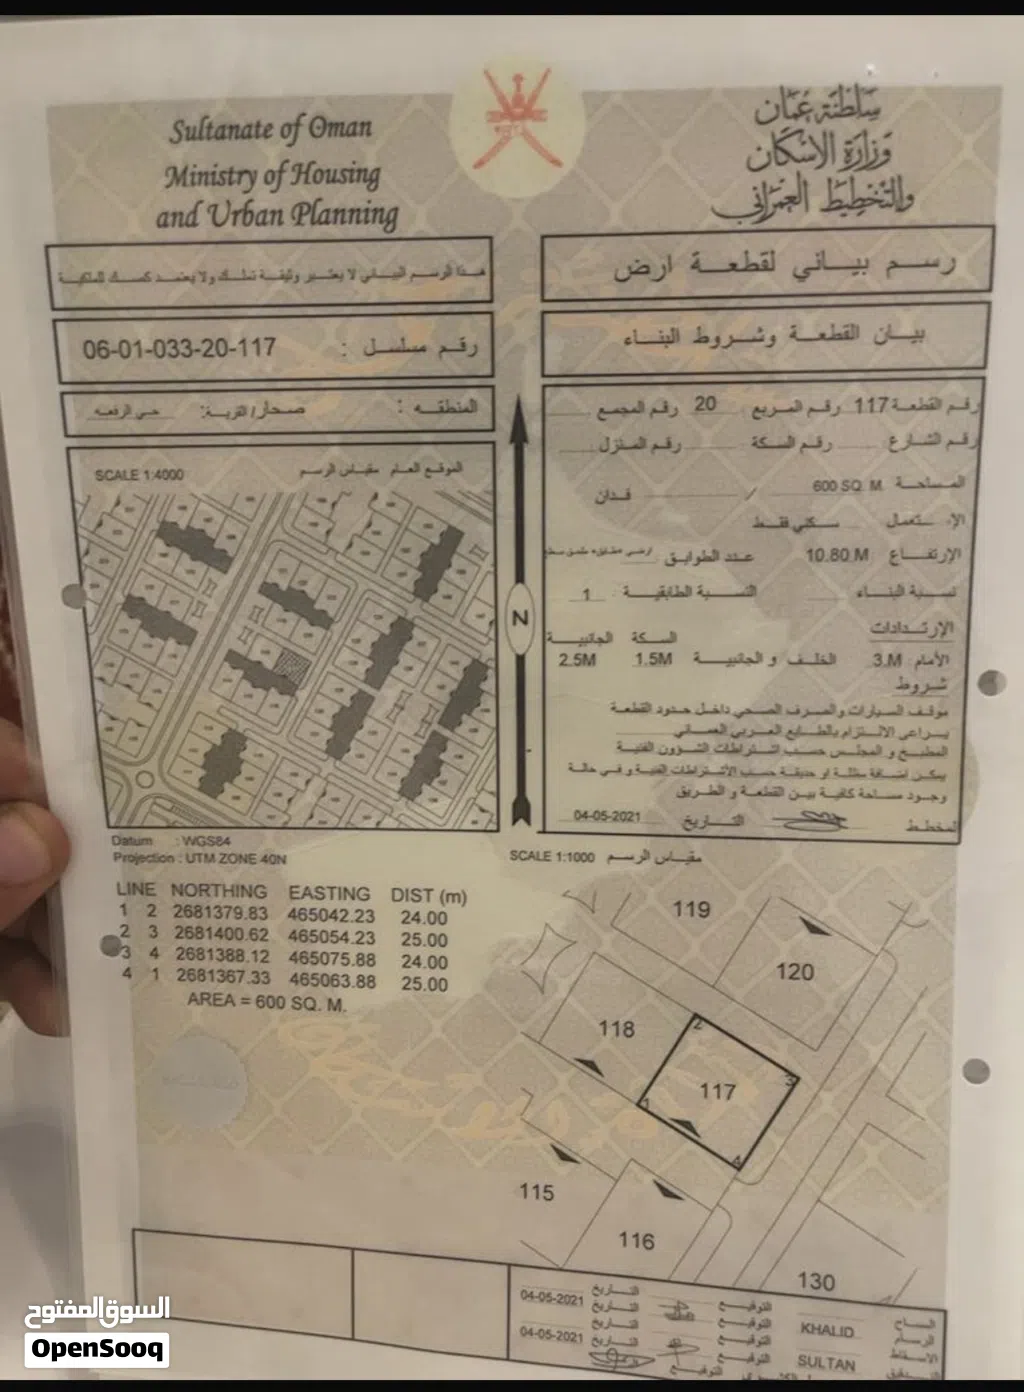 Sultanate of Oman
Ministry of Housing
and Urban Planning
سلطنة عمان
وزارة الإسكان
والتخطيط العمراني
رسم بياني لقطعة ارض
هذا الرسم البياني لا يعتبر وثيقة تملك ولا يعتمد كسند للملكية
بيان القطعة وشروط البناء
رقم مسلسل : 06-01-033-20-117
المنطقه : صحار/ القرية: حي الرفعه
رقم القطعة 117 رقم المربع 20 رقم المجمع
رقم الشارع رقم السكة رقم المنزل
المساحة 600 SQ. M / فدان
الإستعمال سكني فقط
الإرتفاع 10.80 M عدد الطوابق
نسبة البناء النسبة الطابقية 1
الإرتدادات السكة الجانبية
الأمام 3.M الخلف و الجانبية 1.5M 2.5M
شروط
موقف السيارات والصرف الصحي داخل حدود القطعة
يراعى الالتزام بالطابع العربي العماني
المطبخ و المجلس حسب اشتراطات الشؤون الفنية
يمكن اضافة مظلة او حديقة حسب الأشتراطات الفنية و في حالة
وجود مساحة كافية بين القطعة و الطريق
المخطط التاريخ 04-05-2021
الموقع العام مقياس الرسم SCALE 1:4000
N
Datum : WGS84
Projection : UTM ZONE 40N
SCALE 1:1000 مقياس الرسم
LINE NORTHING EASTING DIST (m)
1 2 2681379.83 465042.23 24.00
2 3 2681400.62 465054.23 25.00
3 4 2681388.12 465075.88 24.00
4 1 2681367.33 465063.88 25.00
AREA = 600 SQ. M.
119
120
118
2
117
3
1
4
115
116
130
المساح KHALID التوقيع التاريخ 04-05-2021
الرسم التوقيع التاريخ
الاسقاط SULTAN التوقيع التاريخ 04-05-2021
التدقيق التوقيع التاريخ
السوق المفتوح
OpenSooq